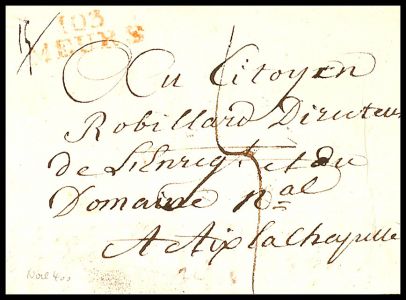 103
MEURS
Au Citoyen
Robillard Directeur
de L'Enreg.t et du
Domaine n.al
A Aix la Chapelle